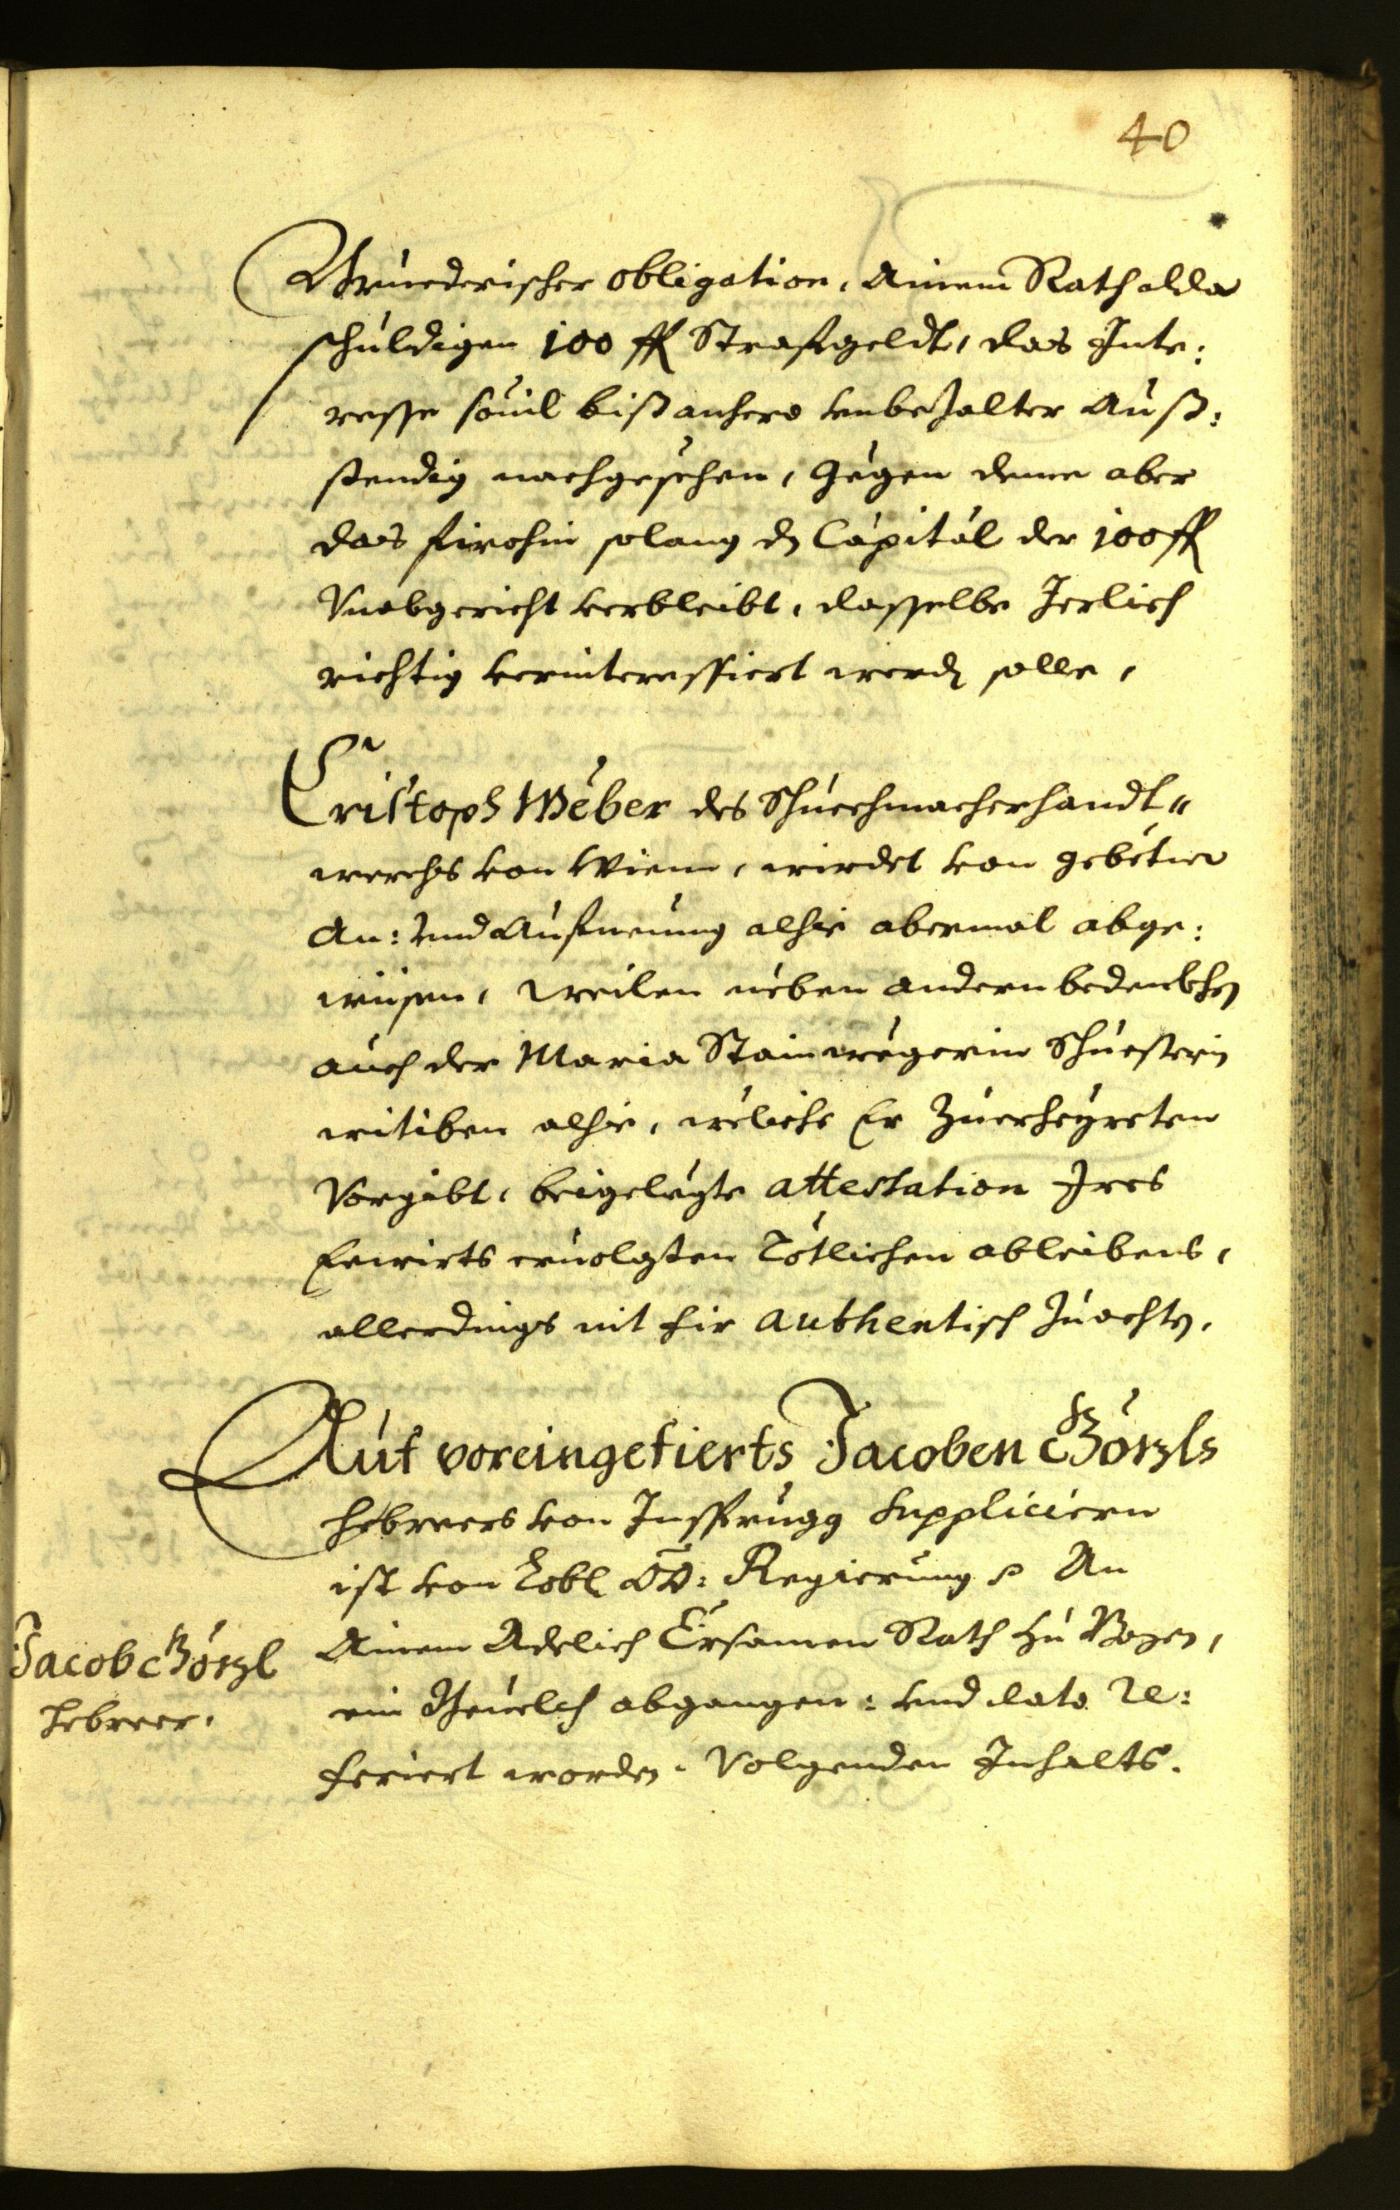 40
Gruederischer obligation, Ainem Rath alda
schuldigen 100 fl Strafgeldt, das Inte:
resse souil biß anhero vnbezalter Auß:
stendig nachgesehen, Gegen deme aber
das firohin solang dz Capital der 100 fl
Vnabgericht verbleibt, dasselbe Jerlich
richtig verinteressiert werdn solle,
Cristoph Weber des Schuechmacherhandt„
werchs von Wienn, wirdet von gebetner
An: vnd Aufnemung alhie abermal abge:
wisen, weilen neben andern bedenckhen
auch der Maria Stainwegerin Schuesterin
witiben alhie, weliche Er Zuerheyreten
Vorgibt, beigelegte attestation Jres
Ewirts eruolgten Tötlichen ableibens,
allerdings nit fir authentisch zuachten.
Auf voreingefierts Jacoben Görzls
Hebreers von Insprugg Suppliciern
ist von Lobl OÖ: Regierung An
Ainem Adelich Ersamen Rath zu Bozen,
ein Beuelch abgangen: vnd dato Re:
feriert worden. Volgenden Inhalts.
Jacob Görzl
Hebreer.